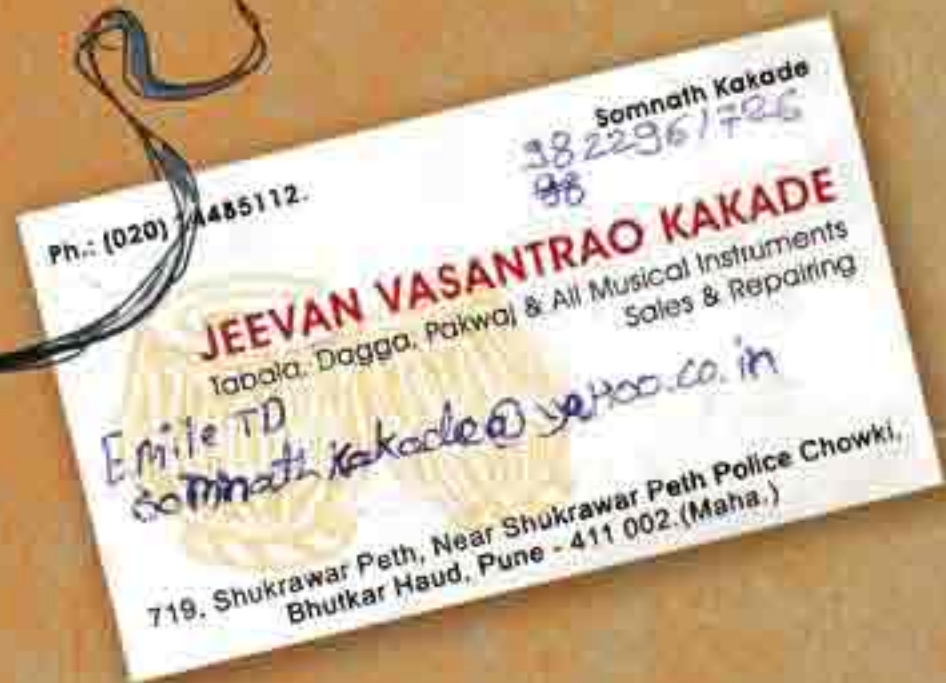 Somnath Kakade
9822961726
98
Ph.: (020) 24485112.
JEEVAN VASANTRAO KAKADE
Tabala, Dagga, Pakwaj & All Musical Instruments
Sales & Repairing
Emile TD
somnathkakade@yahoo.co.in
719, Shukrawar Peth, Near Shukrawar Peth Police Chowki,
Bhutkar Haud, Pune - 411 002.(Maha.)